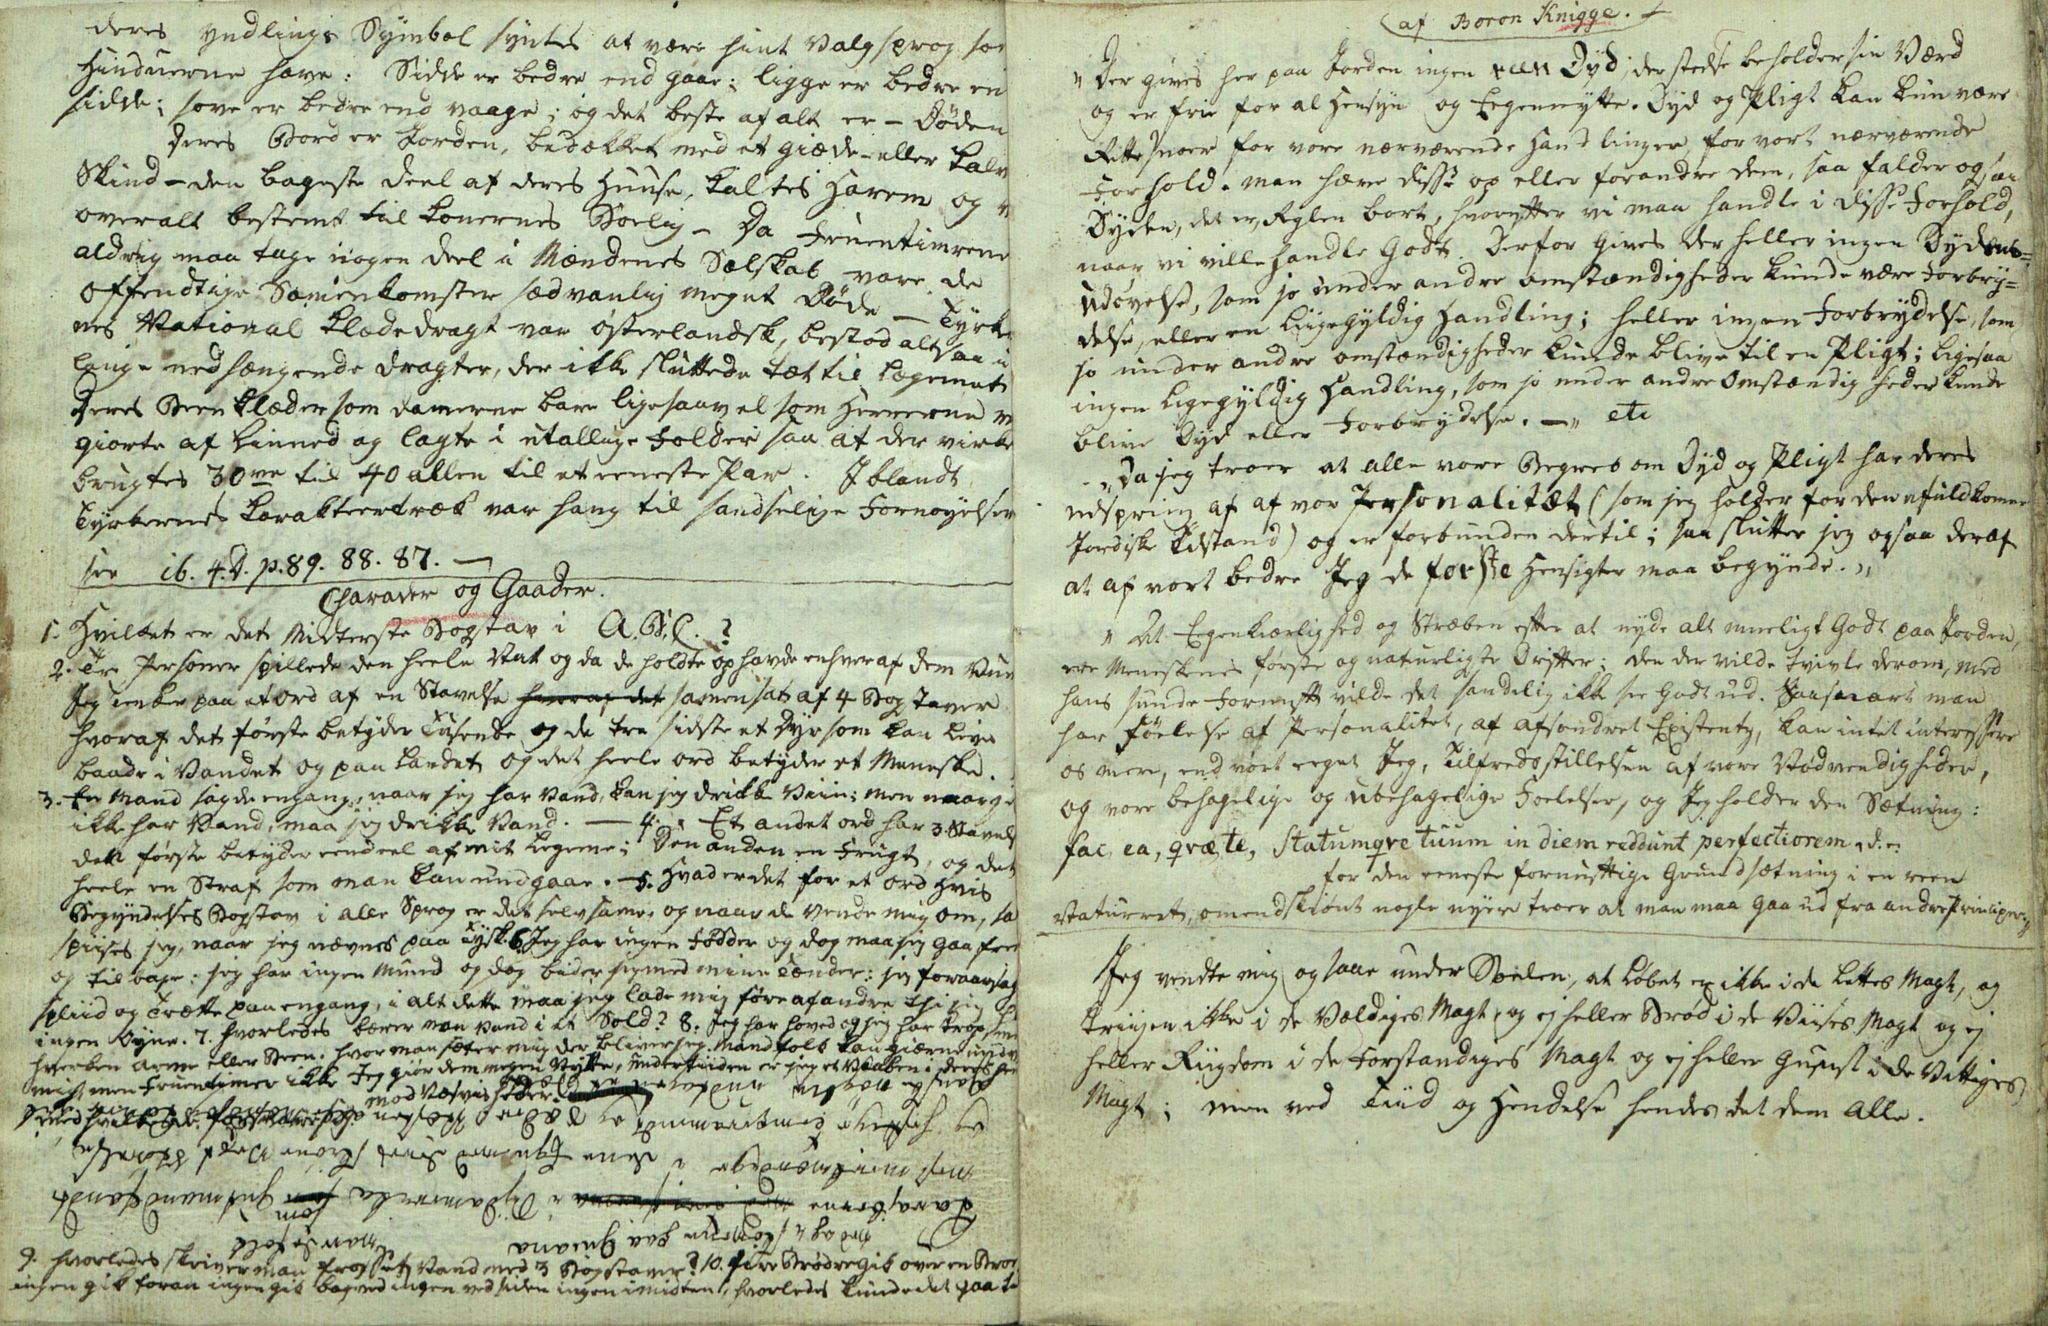 deres yndlings Symbol syntes at være hint Valgsprog so
Hinduerne have: Sidde er bedre end gaae; ligge er bedre en
sidde; sove er bedre end vaage; og det beste af alt er – Döden
Deres Bord er Jorden, bedækket med et giede- eller Kalv
Skind – den bageste Deel af deres Huuse, kaltes Harem og v
overalt bestemt til Konernes Boelig – Da Fruentimrene
aldrig maa tage nogen deel i Mændenes Selskab vare de
offendtige Samenkomster sædvanlig meget Döde – Tyrke
nes National Klædedragt var österlandsk, bestod altsaa i
lange nedhængende dragter, der ikke sluttede tæt til Legemet
Deres Beenklæder som Damerne bare ligesaavel som Herrerne v
giorte af Linned og lagte i utallige Folder saa at der virke
brugtes 30ve til 40 allen til et eeneste Par. Iblandt
Tyrkernes Karakteertræk var hang til sandselige Fornøyelser
see ib. 4. D. p. 89. 88. 87. –
Charader og Gaader.
1. Hvilket er det Midterste Bogstav i A.B.C.?
2. Tre Personer spillede den heele Nat og da de holdte op havde enhver af dem Vun
Jeg tenker paa et ord af en Stavelse hvoraf det samensat af 4 Bogstaver
hvoraf det første betyder Tusende og de tre sidste et Dyr som kan leve
baade i Vandet og paa Landet og det heele ord betyder et Meneske.
3. En Mand sagde engang, naar jeg har Vand, kan jeg drikke Viin; men naar j
ikke har Vand, maa jeg drikke Vand. — 4. Et andet ord har 3 Stavels
den første betyder eendeel af mit Legeme; Den anden en Frugt, og det
heele en Straf som man kan undgaae. – 5. Hvad er det for et ord Hvis
Begyndelses Bogstav i alle Sprog er det selvsamme og naar de Vende mig om, sa
spiises jeg, naar jeg nævnes paa Tysk. 6. Jeg har ingen Födder og dog maa jeg gaa frem
og tilbage: jeg har ingen Mund og dog bider jeg med mine Tænder: jeg foraarsag
Spliid og Trætte paa engang, i alt dette maa jeg lade mig føre af andre thi jeg ha
ingen Öyne. 7. Hvorledes bærer man Vand i et Sold? 8. Jeg har hoved og jeg har krop, men
hverken arme eller Been. hvor man sæter mig der bliver jeg. Mandfolk kan gierne undv
mig, men Fruentimer ikke Jeg giør dem megen Nytte, undertiiden er jeg et Vaaben i deres hæ
mod Næsviisheder.
9. hvorledes skriver man frossent Vand med 3 Bogstaver? 10. Fire Brödre gik over en Broe
ingen gik foran ingen gik bagved ingen ved siden ingen i midten, hvorledes kunde det gaa t
(af Baron Knigge.
"Der gives her paa Jorden ingen reen Dyd, der stedse beholder sin Værd
og er frie for al Hensyn og Eegennytte. Dyd og Pligt kan kun være
Rettesnoer for vore nærværende Handlinger, for vort nærværende
Forhold. man hæve disse op eller forandre dem, saa falder ogsaa
Dyden, det er, Reglen bort, hvorefter vi maa handle i disse Forhold,
naar vi ville handle Godt. Derfor Gives der heller ingen Dydens=
udøvelse, som jo under andre omstændigheder kunde være Forbry=
delse, eller en ligegyldig Handling; heller ingen Forbrydelse, som
jo under andre omstændigheder kunde blive til en Pligt; ligesaa
ingen ligegyldig Handling, som jo under andre Omstændigheder kunde
blive Dyd eller Forbrydelse. – " etc
"Da jeg troer at alle vore Begreb om Dyd og Pligt har deres
udspring af af vor Personalitæt (som jeg holder for den ufuldkomne
Jordiske Tilstand) og er forbunden dertil; saa slutter jeg ogsaa deraf
at af vort bedre Jeg de første Hensigter maa begynde."
"At Egenkiærlighed og Stræben efter at nyde alt mueligt Godt paa Jorden,
ere Meneskenes første og naturligste Drifter; den der vilde tvivle derom, med
hans sunde Fornuft vilde det sandelig ikke see Godt ud. Saasnart man
har Föelelse af Personalitet, af afsondret Existentz, kan intet interessere
os mere, end vort eeget Jeg, Tilfredsstillelsen af vore Nødvendigheder,
og vore behagelige og ubehagelige Foelelser, og Jeg holder den Sætning:
fac, ea, qvæ te, Statumqve tuum in diem reddunt perfectiorem, d.e.
for den eeneste fornuftige Grundsætning i en reen
Naturret, omendskiønt nogle nyere troer at man maa gaa ud fra andre Principier"
Jeg vendte mig og saae under Soelen, at Løbet er ikke i de Lettes Magt, og
Kriigen ikke i de Vældiges Magt, og ej heller Brød i de Viises Magt og ej
heller Riigdom i de Forstandiges Magt og ej heller Gunst i de Vittiges
Magt; men ved Tiid og Hendelse hendes det dem Alle.